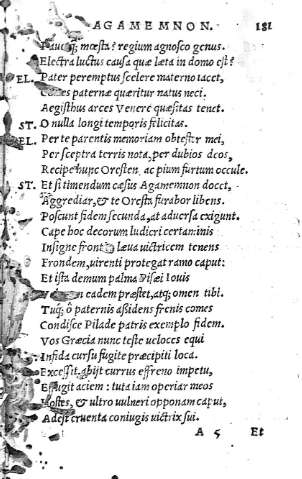 AGAMEMNON. 181
mœsta? regium agnosco genus.
Electra luctus causa quæ læta in domo est?
EL. Pater peremptus scelere materno iacet,
paternæ quæritur natus neci.
Aegisthus arces Venere quæsitas tenet.
ST. O nulla longi temporis felicitas.
EL. Per te parentis memoriam obtestor mei,
Per sceptra terris nota, per dubios deos,
Recipe hunc Oresten, ac pium furtum occule.
ST. Et si timendum cæsus Agamemnon docet,
Aggrediar, & te Oresta furabor libens.
Poscunt fidem secunda, at aduersa exigunt.
Cape hoc decorum ludicri certaminis
Insigne frontis læua uictricem tenens
Frondem, uirenti protegat ramo caput:
Et ista demum palma Pisæi Iouis
eadem præstet, atq; omen tibi.
Tuq; ô paternis aßidens frenis comes
Condisce Pilade patris exemplo fidem.
Vos Græcia nunc teste ueloces equi
Infida cursu fugite præcipiti loca.
Exceßit, abijt currus effreno impetu,
Effugit aciem: tuta iam operiar meos
Hostes, & ultro uulneri opponam caput,
Adest cruenta coniugis uictrix sui.
A 5 Et